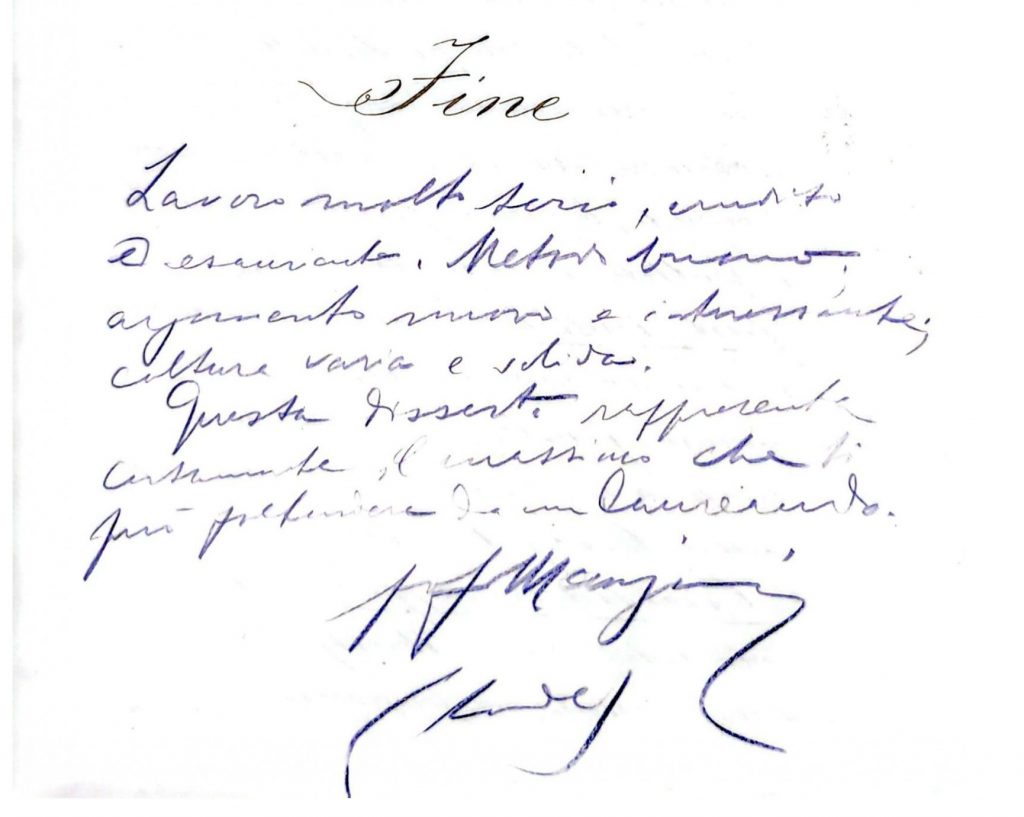 Fine
Lavoro molto serio, erudito
ed esauriente. Metodo buono,
argomento nuovo e interessante;
cultura varia e solida.
Questa dissert. rappresenta
certamente il massimo che si
può pretendere da un laureando.
prof Mangini